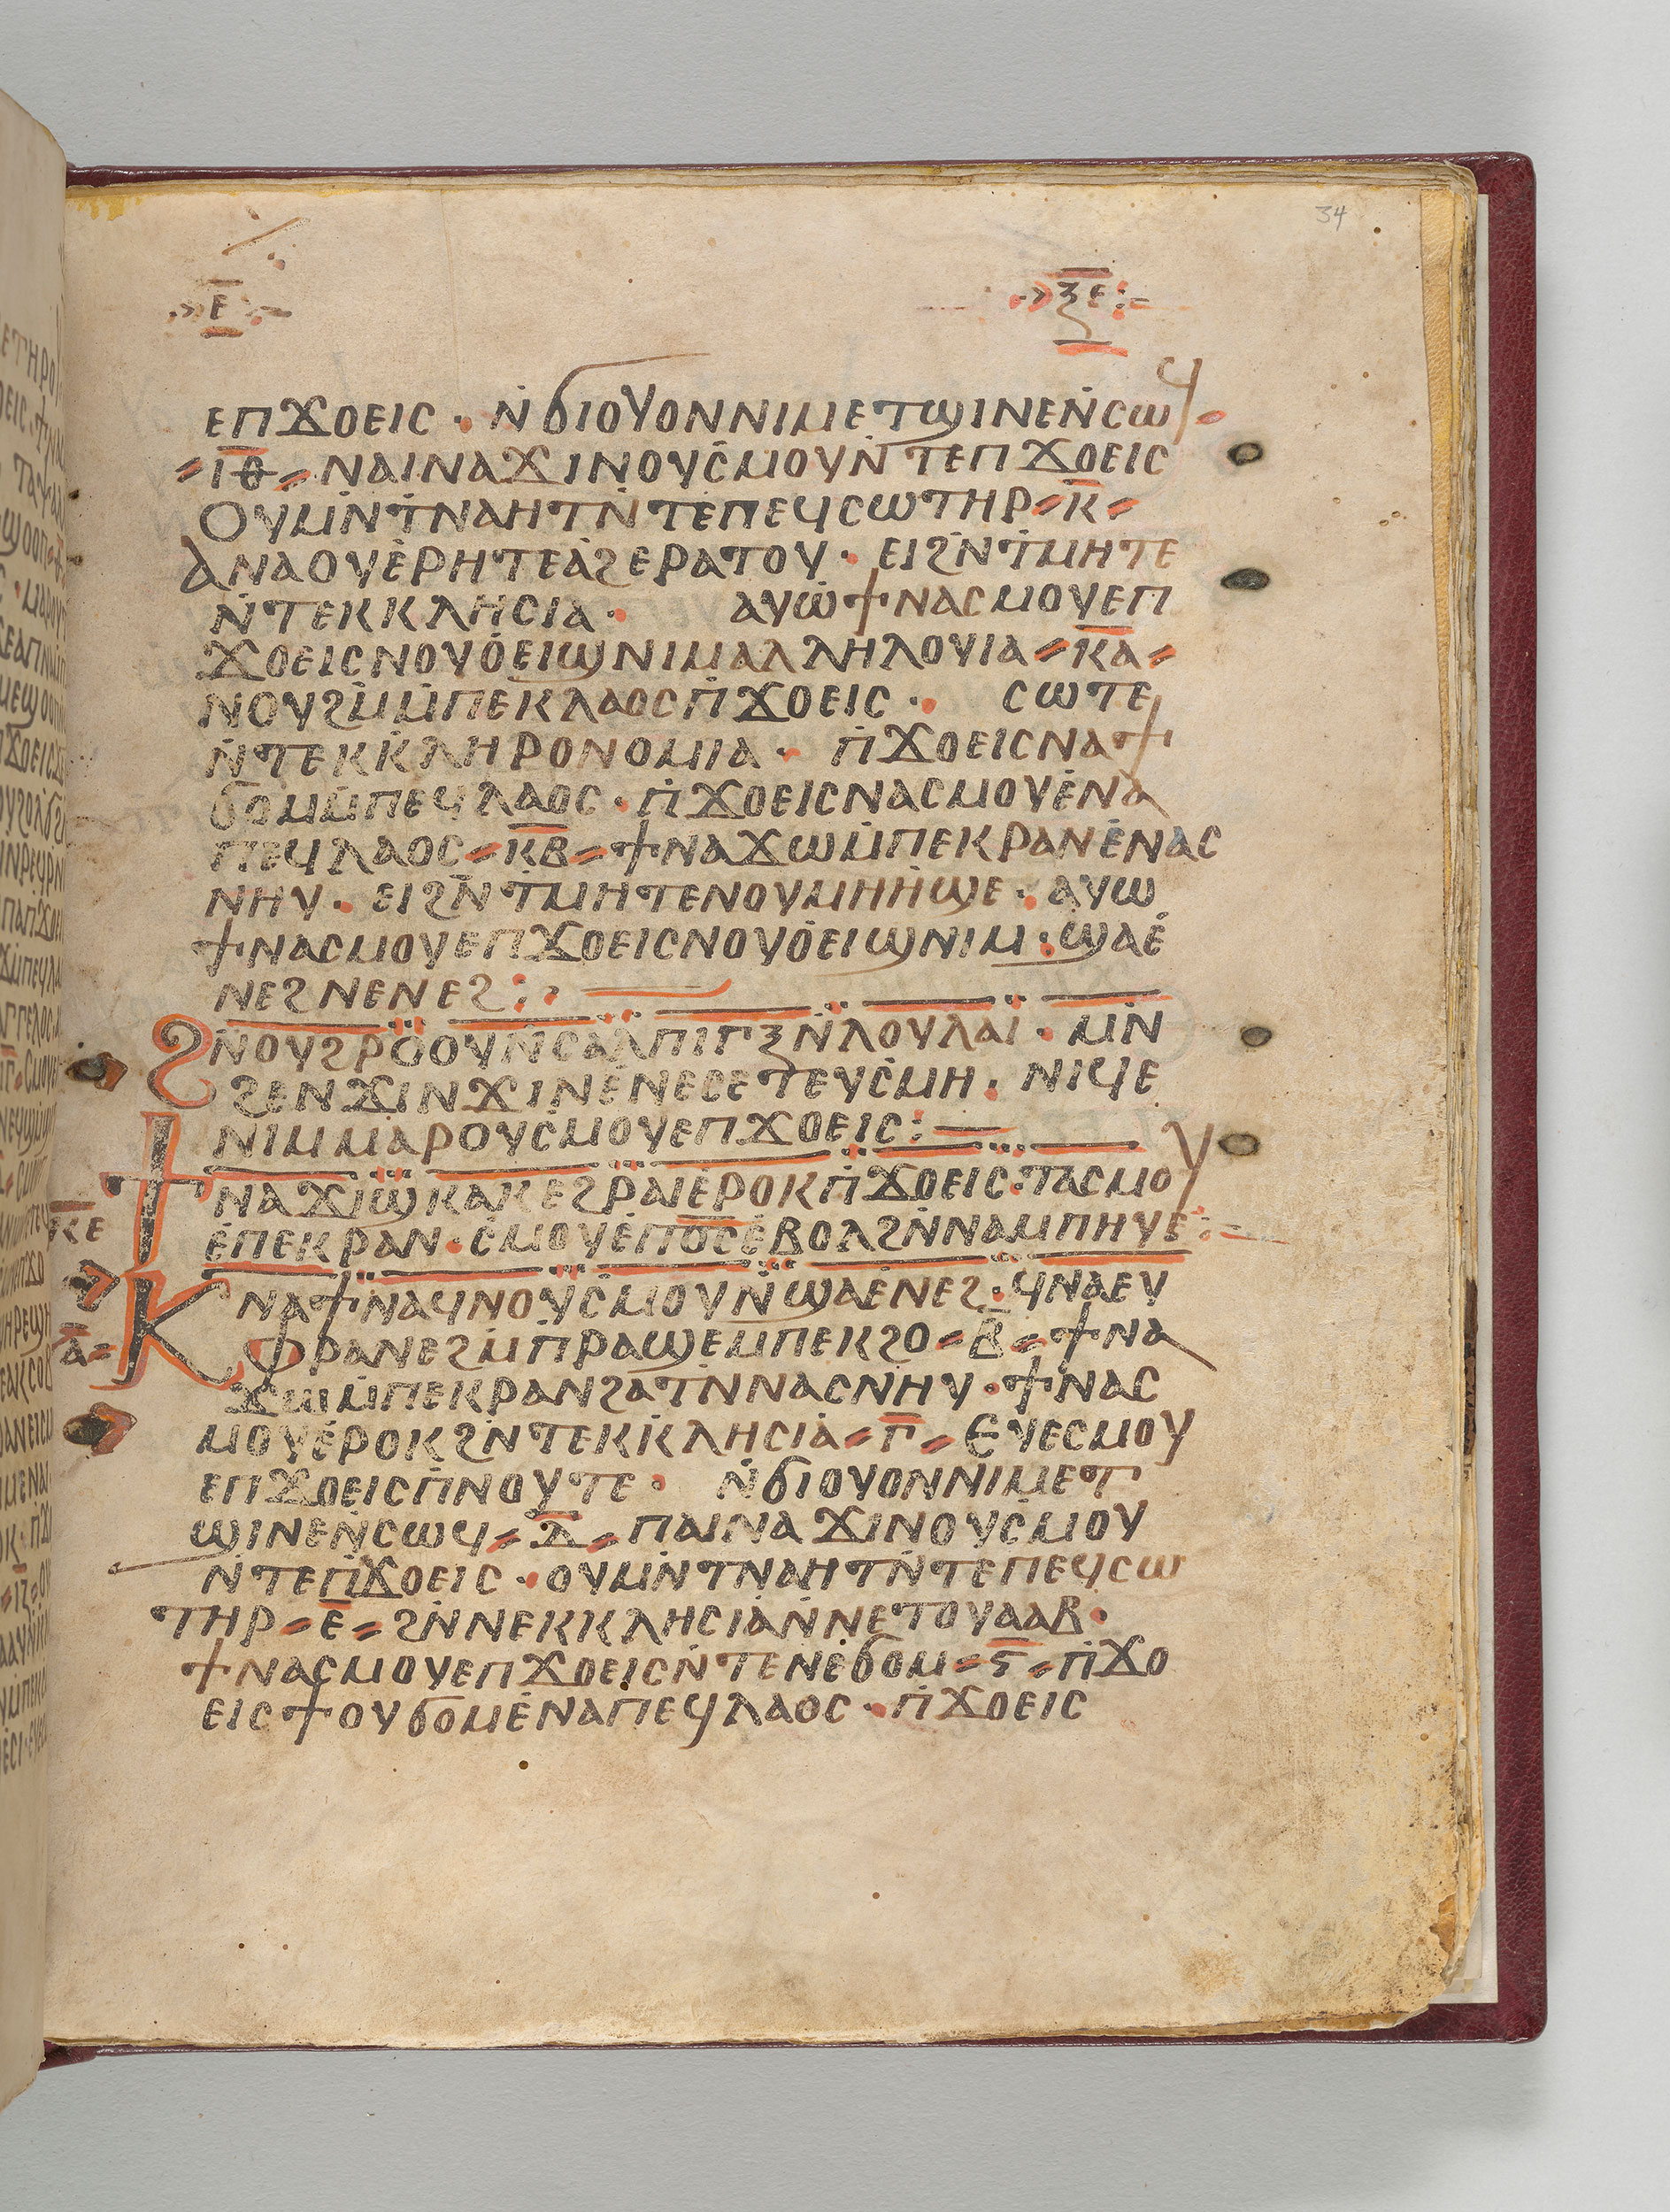 34
ⲉ̅ ⲝⲉ̅
ⲉⲡϫⲟⲉⲓⲥ · ⲛ̇ϭⲓⲟⲩⲟⲛⲛⲓⲙⲉⲧϣⲓⲛⲉⲛ̇ⲥⲱϥ ·
ⲓ̅ⲑ̅ ⲛⲁⲓⲛⲁϫⲓⲛⲟⲩⲥ̇ⲙⲟⲩⲛ̇ⲧⲉⲡϫⲟⲉⲓⲥ
ⲟⲩⲙⲛ̇ⲧ̇ⲛⲁⲏⲧⲛ̇ⲧⲉⲡⲉϥⲥⲱⲧⲏⲣ ⲕ̅
ⲁⲛⲁⲟⲩⲉ̇ⲣⲏⲧⲉⲁ̇ϩⲉⲣⲁⲧⲟⲩ · ⲉⲓϩⲛ̇ⲧ̇ⲙⲏⲧⲉ
ⲛ̇ⲧⲉⲕⲕⲗⲏⲥⲓⲁ · ⲁⲩⲱ̇ϯⲛⲁⲥⲙⲟⲩⲉⲡ
ϫⲟⲉⲓⲥⲛⲟⲩⲟ̇ⲉⲓϣⲛⲓⲙⲁⲗⲗⲏⲗⲟⲩⲓⲁ ⲕ̅ⲁ̅
ⲛⲟⲩϩⲙ̇ⲙ̇ⲡⲉⲕⲗⲁⲟⲥⲡ̇ϫⲟⲉⲓⲥ · ⲥⲱⲧⲉ
ⲛ̇ⲧⲉⲕⲕ̇ⲗⲏⲣⲟⲛⲟⲙⲓⲁ · ⲡ̇ϫⲟⲉⲓⲥⲛⲁϯ
ϭⲟⲙⲙ̇ⲡⲉϥⲗⲁⲟⲥ · ⲡ̇ϫⲟⲉⲓⲥⲛⲁⲥⲙⲟⲩⲉ̇ⲛⲁ
ⲡⲉϥⲗⲁⲟⲥ ⲕ̅ⲃ̅ ϯⲛⲁϫⲱⲙ̇ⲡⲉⲕⲣⲁⲛⲉ̇ⲛⲁⲥ
ⲛⲏⲩ · ⲉⲓϩⲛ̇ⲧ̇ⲙⲏⲧⲉⲛⲟⲩⲙⲏⲏ̇ϣⲉ · ⲁⲩⲱ
ϯⲛⲁⲥⲙⲟⲩⲉⲡϫⲟⲉⲓⲥⲛⲟⲩⲟ̇ⲉⲓϣⲛⲓⲙ : ϣⲁⲉ̇
ⲛⲉϩⲛⲉⲛⲉϩ :
ϩⲛⲟⲩϩⲣⲟⲟⲩⲛ̇ⲥⲁⲗⲡⲓⲅⲝⲛ̇ⲗⲟⲩⲗⲁⲓ̈ · ⲙⲛ̇
ϩⲉⲛϫⲓⲛϫⲓⲛⲉ̇ⲛⲉⲥⲉⲧⲉⲩⲥ̇ⲙⲏ · ⲛⲓϥⲉ
ⲛⲓⲙⲙⲁⲣⲟⲩⲥ̇ⲙⲟⲩⲉⲡϫⲟⲉⲓⲥ :
ϯⲛⲁϫⲓϣⲕⲁⲕⲉϩⲣⲁⲓⲉ̇ⲣⲟⲕⲡ̇ϫⲟⲉⲓⲥ · ⲧⲁⲥⲙⲟⲩ
ⲕ̅ⲉ̅ ⲉ̇ⲡⲉⲕⲣⲁⲛ · ⲥ̇ⲙⲟⲩⲉ̇ⲡⲟ̅ⲥ̅ⲉ̇ⲃⲟⲗϩⲛ̇ⲛⲁⲙⲡⲏⲩⲉ :
ⲕⲛⲁϯⲛⲁϥⲛⲟⲩⲥ̇ⲙⲟⲩⲛ̇ϣⲁⲉⲛⲉϩ · ϥⲛⲁⲉⲩ
ⲁ̅ ⲫⲣⲁⲛⲉϩⲙ̇ⲡ̇ⲣⲁϣⲉⲙⲡⲉⲕϩⲟ ⲃ̅ ϯⲛⲁ
ϫⲱⲙ̇ⲡⲉⲕⲣⲁⲛϩⲁⲧⲛ̇ⲛⲁⲥⲛⲏⲩ · ϯⲛⲁⲥ
ⲙⲟⲩⲉ̇ⲣⲟⲕϩⲛ̇ⲧⲉⲕⲕ̇ⲗⲏⲥⲓⲁ̇ ⲅ̅ ⲉⲩⲉⲥⲙⲟⲩ
ⲉⲡϫⲟⲉⲓⲥⲡ̇ⲛⲟⲩⲧⲉ · ⲛ̇ϭⲓⲟⲩⲟⲛⲛⲓⲙⲉⲧ
ϣⲓⲛⲉⲛ̇ⲥⲱϥ ⲇ̅ ⲡⲁⲓⲛⲁϫⲓⲛⲟⲩⲥ̇ⲙⲟⲩ
ⲛ̇ⲧⲉⲡ̇ϫⲟⲉⲓⲥ · ⲟⲩⲙⲛ̇ⲧⲛⲁⲏⲧⲛ̇ⲧⲉⲡⲉϥⲥⲱ
ⲧⲏⲣ ⲉ̅ ϩⲛ̇ⲛⲉⲕⲕⲗⲏⲥⲓⲁ̇ⲛ̇ⲛⲉⲧⲟⲩⲁⲁⲃ ·
ϯⲛⲁⲥⲙⲟⲩⲉⲡϫⲟⲉⲓⲥⲛ̇ⲧⲉⲛⲉ̇ϭⲟⲙ ⲋ̅ ⲡ̇ϫⲟ
ⲉⲓⲥϯⲟⲩϭⲟⲙⲉ̇ⲛⲁⲡⲉϥⲗⲁⲟⲥ · ⲡ̇ϫⲟⲉⲓⲥ